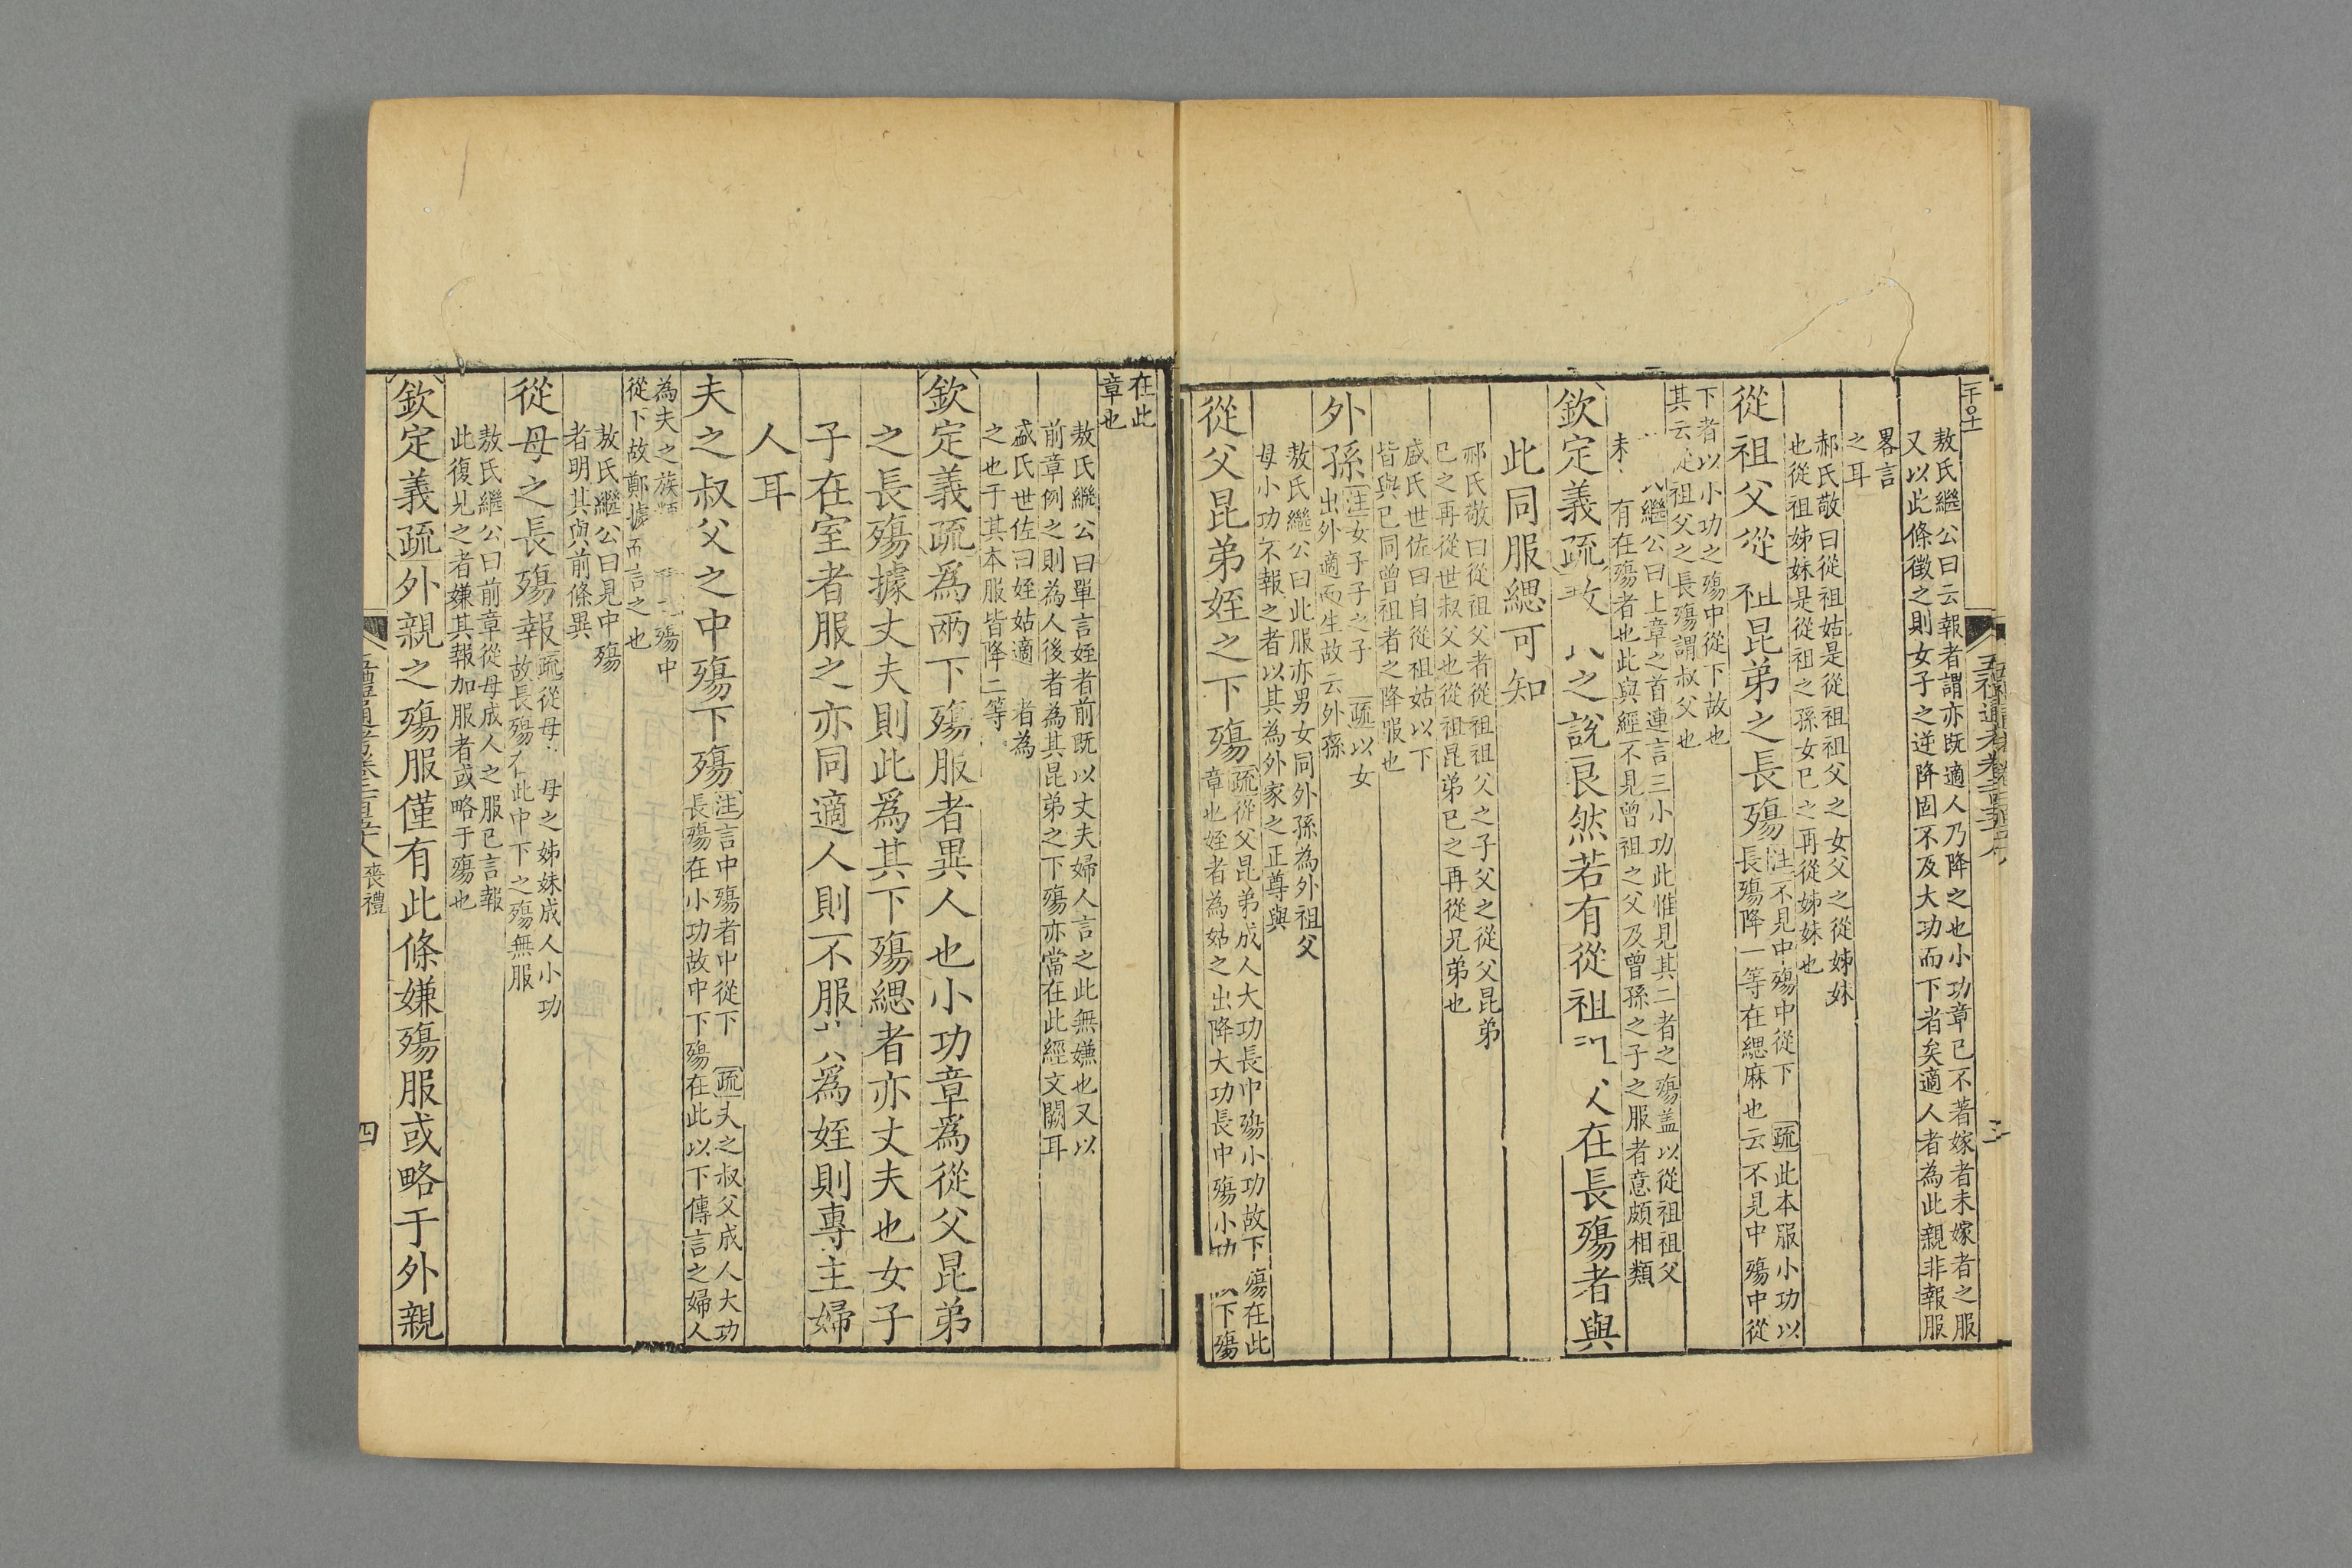 敖氏繼公曰云報者謂亦旣適人乃降之也小功章已不著嫁者未嫁者之服
又以此條徵之則女子之逆降固不及大功而下者矣適人者為此親非報服
畧言
之耳
郝氏敬曰從祖姑是從祖祖父之女父之從姊妹
也從祖姊妹是從祖之孫女已之再從姊妹也
從祖父從祖昆弟之長殤
注不見中殤中從下 疏此本服小功以
長殤降一等在緦麻也云不見中殤中從
下者以小功之殤中從下故也
其云從祖父之長殤謂叔父也
繼公曰上章之首連言三小功此惟見其二者之殤盖以從祖祖父
未 有在殤者也此與經不見曾祖之父及曾孫之子之服者意頗相類
欽定義疏 之說良然若有從祖 在長殤者與
此同服緦可知
郝氏敬曰從祖父者從祖祖父之子父之從父昆弟
已之再從世叔父也從祖昆弟已之再從兄弟也
盛氏世佐曰自從祖姑以下
皆與已同曾祖者之降服也
外孫
注女子子之子 疏以女
出外適而生故云外孫
敖氏繼公曰此服亦男女同外孫為外祖父
母小功不報之者以其為外家之正尊與
從父昆弟姪之下殤
疏從父昆弟成人大功長中殤小功故下殤在此
章也姪者為姑之出降大功長中殤小功 以下殤
在此
章也
敖氏繼公曰單言姪者前旣以丈夫婦人言之此無嫌也又以
前章例之則為人後者為其昆弟之下殤亦當在此經文闕耳
盛氏世佐曰姪姑適 者為
之也于其本服皆降二等
欽定義疏為兩下殤服者異人也小功章爲從父昆弟
之長殤據丈夫則此爲其下殤緦者亦丈夫也女子
子在室者服之亦同適人則不服 爲姪則專主婦
人耳
夫之叔父之中殤下殤
注言中殤者中從下 疏夫之叔父成人大功
長殤在小功故中下殤在此以下傳言之婦人
為夫之族類 殤中
從下故鄭據而言之也
敖氏繼公曰見中殤
者明其與前條異
從母之長殤報
疏從母 母之姊妹成人小功
故長殤在此中下之殤無服
敖氏繼公曰前章從母成人之服已言報
此復見之者嫌其報加服者或略于殤也
欽定義疏外親之殤服僅有此條嫌殤服或略于外親
五禮通考卷二百五十六 喪禮 四